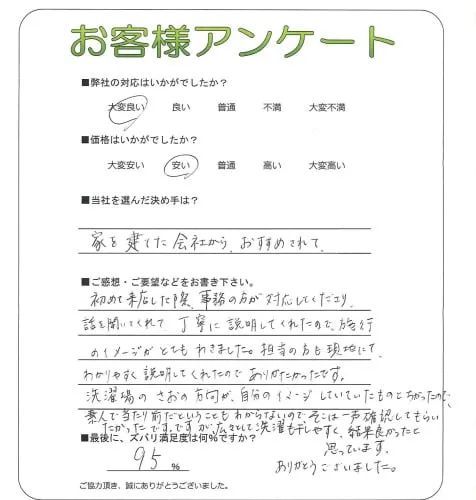 お客様アンケート
■弊社の対応はいかがでしたか？
大変良い 良い 普通 不満 大変不満
■価格はいかがでしたか？
大変安い 安い 普通 高い 大変高い
■当社を選んだ決め手は？
家を建てた会社から、おすすめされて、
■ご感想・ご要望などをお書き下さい。
初めて来店した際、事務の方が対応してくださり、
話を聞いてくれて 丁寧に説明してくれたので、施行
のイメージがとてもわきました。担当の方も現地にて、
わかりやすく説明してくれたのでありがたかったです。
洗濯場のさおの方向が、自分のイメージしていたものとちがったので、
素人で当たり前だということもわからないので、そこは一声確認してもらい
たかったです。ですが、広々として洗濯も干しやすく、結果良かったと
思っています。
ありがとうございました。
■最後に、ズバリ満足度は何%ですか？
95 %
ご協力頂き、誠にありがとうございました。